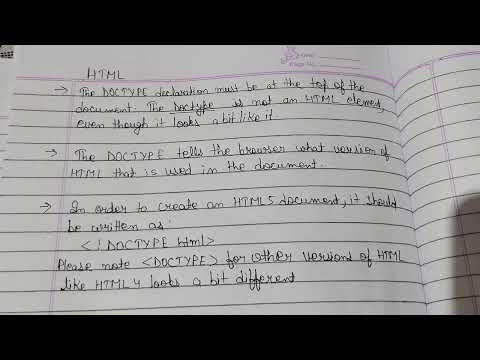 HTML
→ The DOCTYPE declaration must be at the top of the
document. The Doctype is not an HTML element,
even though it looks a bit like it.
→ The DOCTYPE tells the browser what version of
HTML that is used in the document.
→ In order to create an HTML5 document, it should
be written as:
<!DOCTYPE html>
Please note <DOCTYPE> for other versions of HTML
like HTML4 looks a bit different